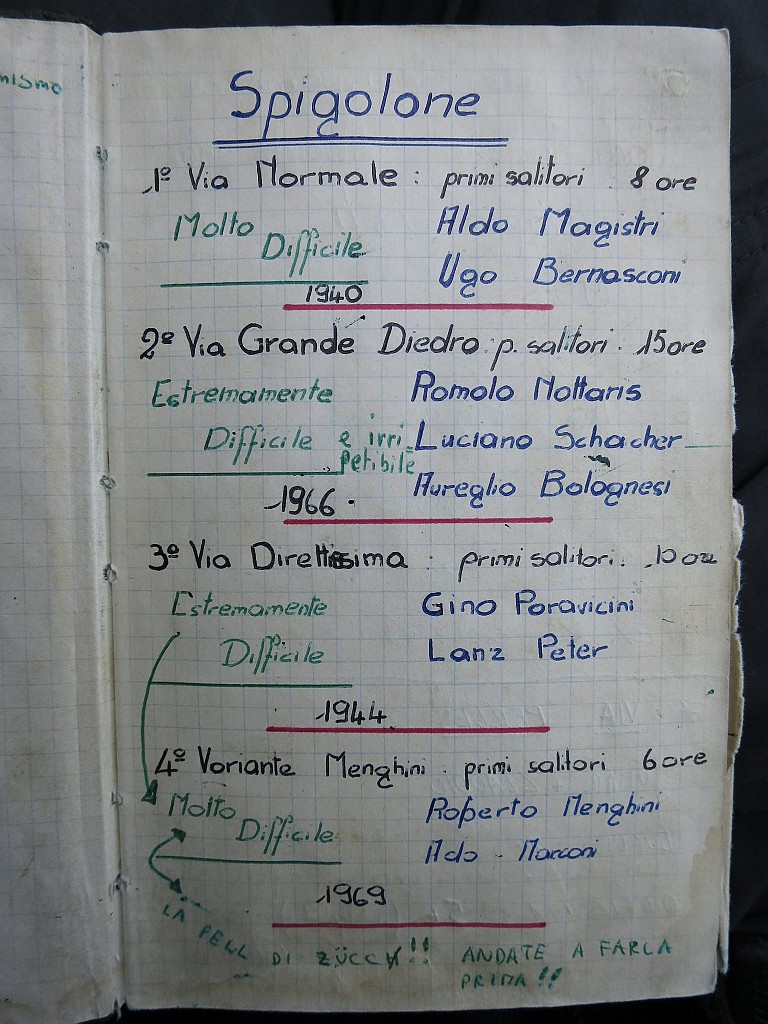 nismo
Spigolone
1º Via Normale : primi salitori . 8 ore
Molto Aldo Magistri
Difficile
Ugo Bernasconi
1940
2º Via Grande Diedro : p. salitori . 15 ore
Estremamente Romolo Nottaris
Difficile e irri= Luciano Schacher
petibile
Aureglio Bolognesi
1966 .
3º Via Direttissima : primi salitori . 10 ore
Estremamente Gino Poravicini
Difficile Lanz Peter
1944
4º Variante Menghini . primi salitori 6 ore
Molto Roberto Menghini
Difficile
Aldo Marconi
1969
LA PELL DI ZÜCCH!! ANDATE A FARLA
PRIMA!!